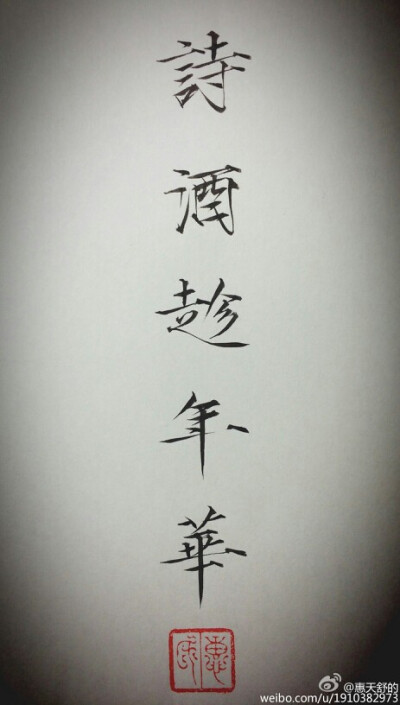 詩酒趁年華
惠氏
@惠天舒的
weibo.com/u/1910382973